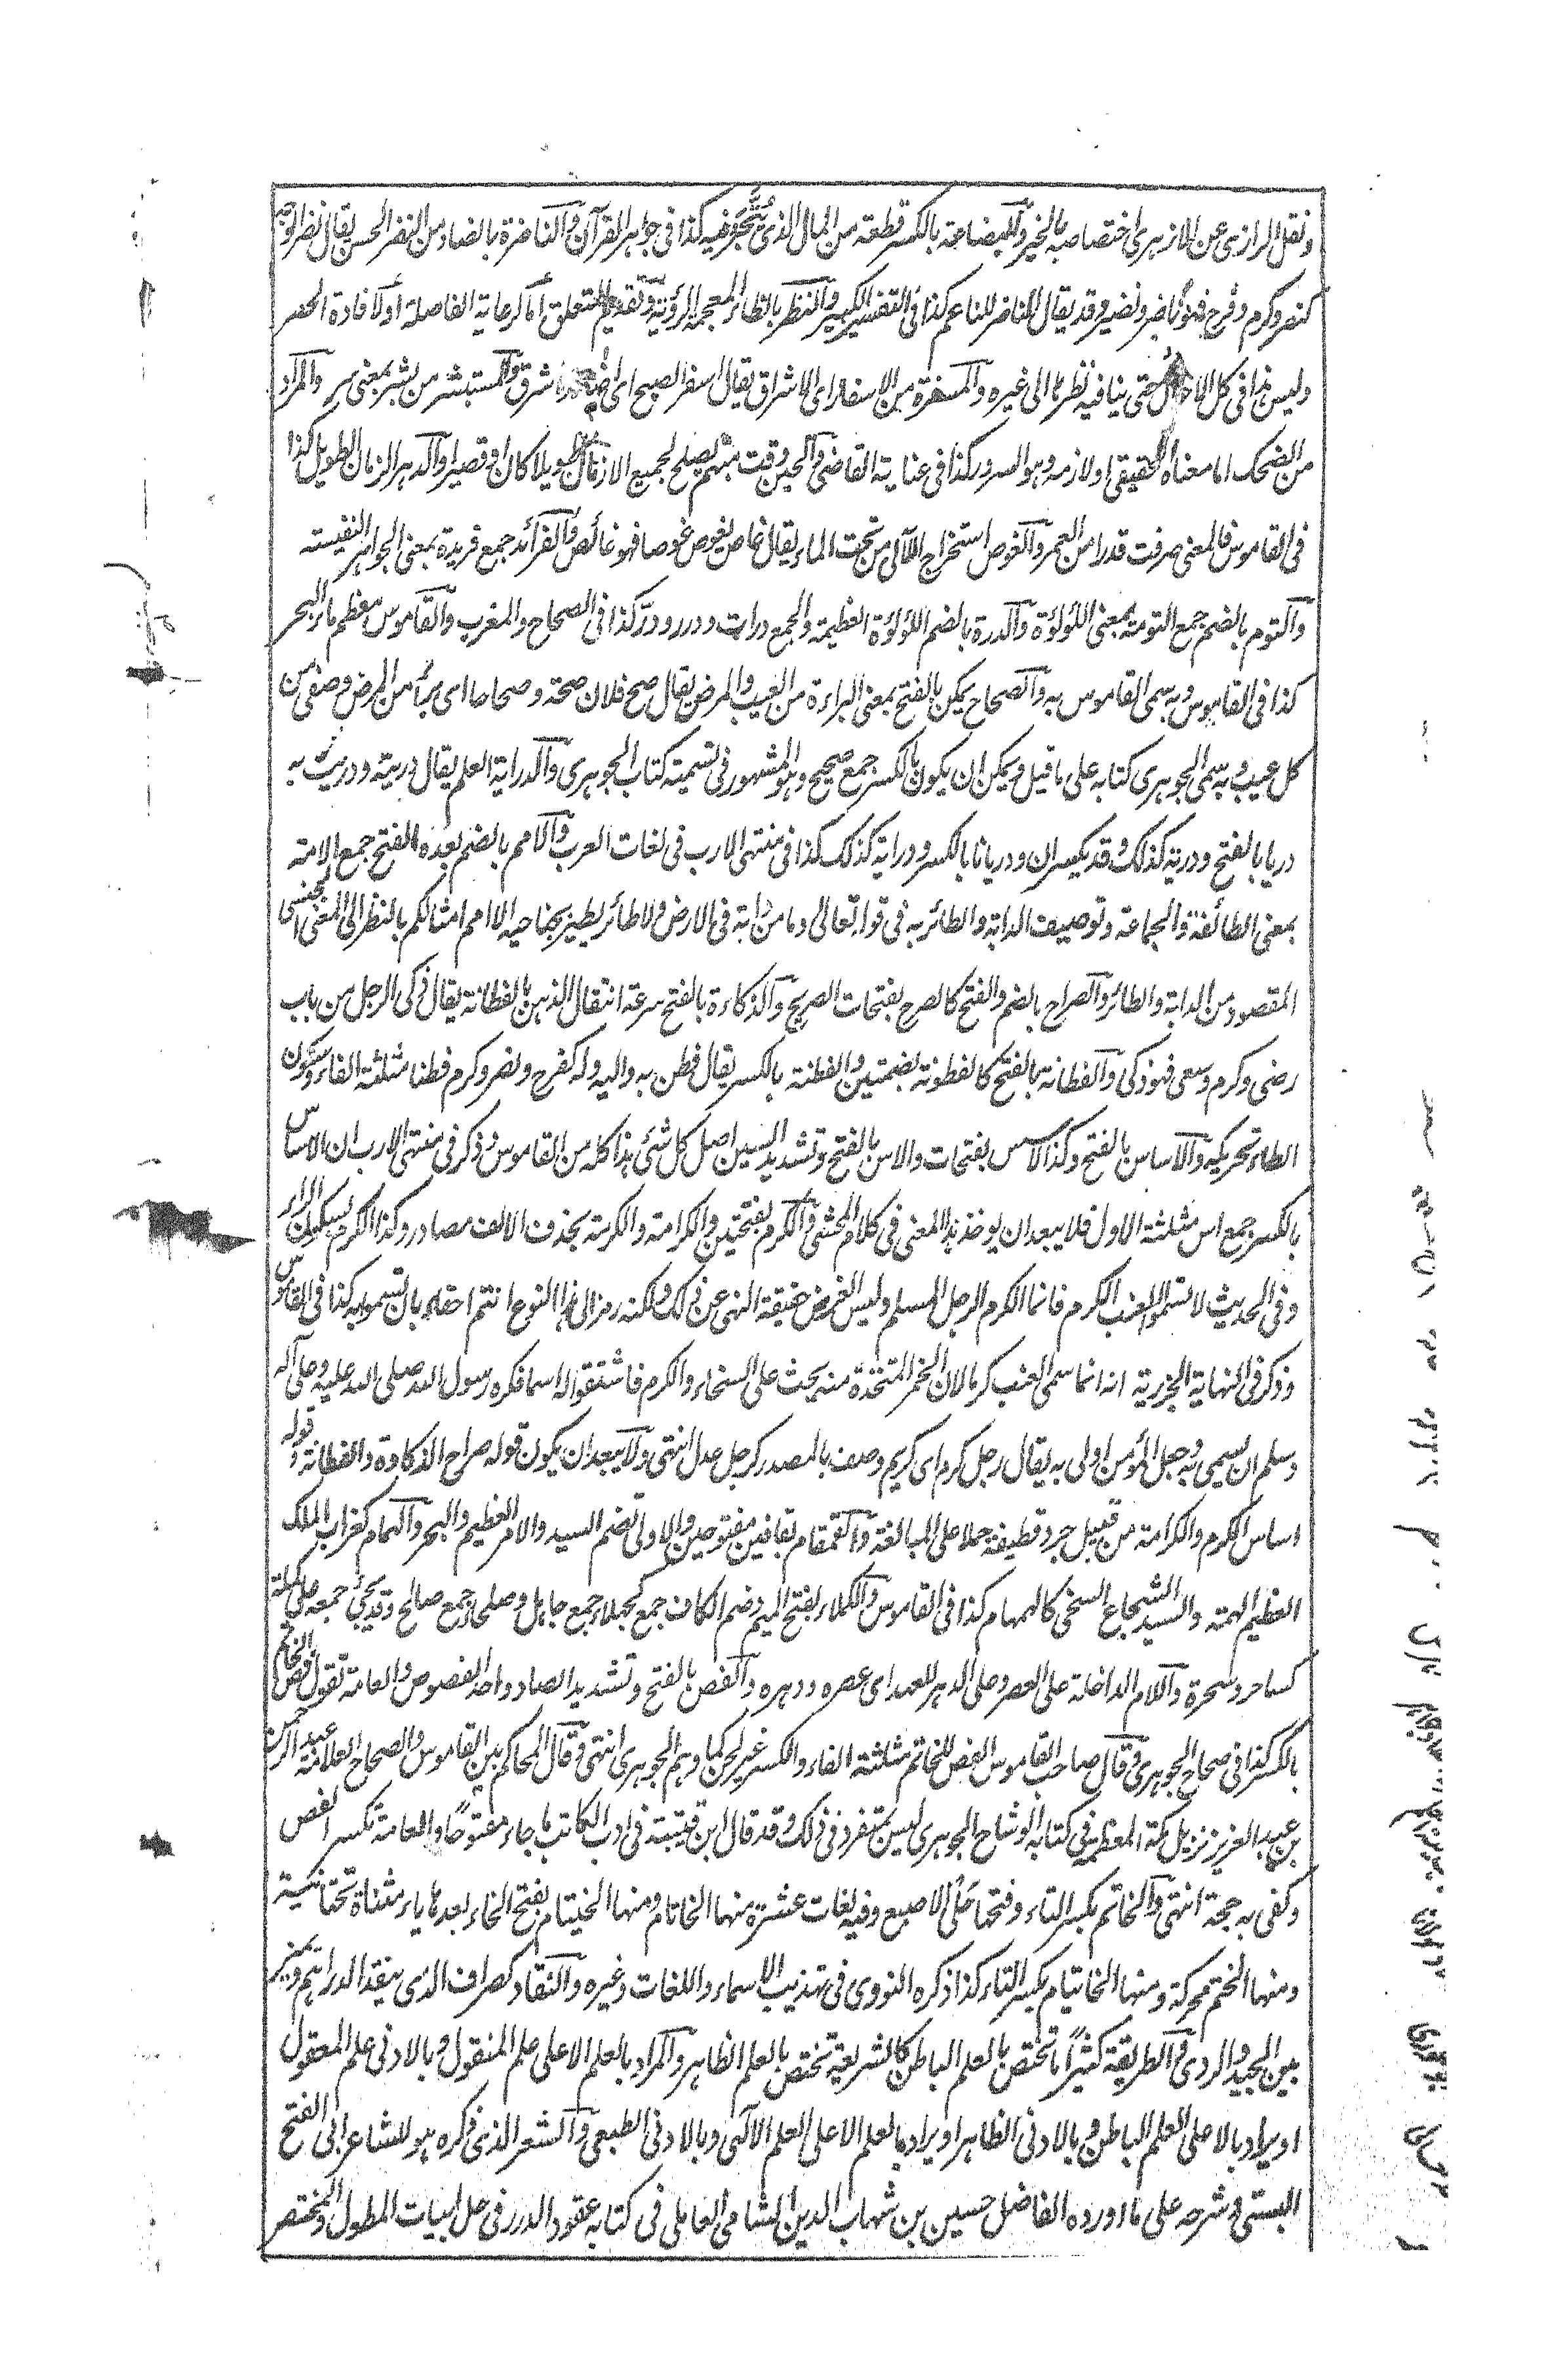 ونقل الرازي عن الازهري اختصاصه بالخير والبضاعة بالكسر قطعة من المال الذي يُتَّجَر فيه كذا في جواهر القرآن والناضرة بالضاد من النضر الحسن يقال نضر الوجه
كنصر وكرم وفرح فهو ناضر ونضير وقد يقال الناضر للناعم كذا في التفسير الكبير والنظر بالظاء المعجمة الرؤية وتقديم المتعلق اما لرعاية الفاصلة او لافادة الحصر
وليس هذا في كل الاحوال حتى ينافيه نظرها الى غيره والمسفرة من الاسفار اي الاشراق يقال اسفر الصبح اي اضاء شرق والمستبشر من بشر بمعنى سر والمراد
من الضحك اما معناه الحقيقي او لازمه وهو السرور كذا في عناية القاضي والحين وقت مبهم يصلح لجميع الازمان طويلا كان او قصيرا والدهر الزمان الطويل كذا
في القاموس فالمعنى صرفت قدرا من العمر والغوص استخراج اللآلي من تحت الماء يقال غاص يغوص غوصا فهو غائص والفرائد جمع فريدة بمعنى الجواهر النفيسة
والتوم بالضم جمع التومة بمعنى اللؤلؤة والدرة بالضم اللؤلؤة العظيمة والجمع درات ودرر ودرّ كذا في الصحاح والمغرب والقاموس معظم ماء البحر
كذا في القاموس وبه سمى القاموس به والصحاح يمكن بالفتح بمعنى البراءة من العيب والمرض يقال صح فلان صحة وصحاحا اى برأ من المرض وصفى من
كل عيب وبه سمى الجوهرى كتابه على ما قيل ويمكن ان يكون بالكسر جمع صحيح وهو المشهور في تسمية كتاب الجوهرى والدراية العلم يقال دريته ودريت به
دريا بالفتح ودرية كذلك وقد يكسران ودريانا بالكسر ودراية كذلك كذا في منتهى الارب في لغات العرب والامم بالضم بعده الفتح جمع الامة
بمعنى الطائفة والجماعة وتوصيف الدابة والطائر به في قوله تعالى وما من دابة في الارض ولا طائر يطير بجناحيه الا امم امثالكم بالنظر الى المعنى الجنسى
المقصود من الدابة والطائر والصراح بالضم والفتح كالصرح بفتحات الصريح والذكاءة بالفتح سرعة انتقال الذهن بالفطانة يقال ذكى الرجل من باب
رضى وكرم وسعى فهو ذكى والفطانة بالفتح كالفطونة بضمتين والفطنة بالكسر يقال فطن به واليه وله كفرح ونصر وكرم فطنا مثلثة الفاء وسكون
الطاء وتحريكه والاساس بالفتح وكذا الاسس بفتحات والاس بالفتح وتشديد السين اصل كل شئ هذا كله من القاموس وذكر في منتهى الارب ان الاساس
بالكسر جمع اس مثلثة الاول فلا يبعد ان يوخذ هذا المعنى في كلام المحشى والكرم بفتحتين والكرامة والكرمة بحذف الالف مصادر وكذا الكرم بسكون الراء
وفي الحديث لا تسموا العنب الكرم فانما الكرم الرجل المسلم وليس الغرض حقيقة النهى عن ذلك ولكنه رمز الى هذا النوع انتم احقاء بان تسموا به كذا في القاموس
وذكر في النهاية الجزرية انه انما سمى العنب كرما لان الخمر المتخذة منه يحث على السخاء والكرم فاشتقوا له اسما فكره رسول الله صلى الله عليه وعلى آله
وسلم ان يسمى به وجعل المؤمن اولى به يقال رجل كرم اى كريم وصف بالمصدر كرجل عدل انتهى ولا يبعد ان يكون قوله صراح الذكاوة والفطانة وقوله
اساس الكرم والكرامة من قبيل جرد قطيفة حملا على المبالغة والقمقام بقافين مفتوحين والاولى تضم السيد والامر العظيم والبحر والهمام كغراب الملك
العظيم الهمة والسيد الشجاع السخى كالهمهام كذا في القاموس والكملاء بفتح الميم وضم الكاف جمع كجهلاء جمع جاهل وصلحاء جمع صالح وقد يجئ جمعه على كملة
كساحر وسحرة واللام الداخلة على العصر وعلى الدهر للعهد اى عصره ودهره والفص بالفتح وتشديد الصاد واحد الفصوص والعامة تقول فص الخاتم
بالكسر كذا في صحاح الجوهرى وقال صاحب القاموس الفص للخاتم مثلثة الفاء والكسر غير لحن كما وهم الجوهرى انتهى وقال المحاكم بين القاموس والصحاح العلامة عبد الرحمن
بن عبد العزيز نزيل مكة المعظمة في كتابه الوشاح الجوهرى ليس بمتفرد في ذلك وقد قال ابن قتيبة في ادب الكاتب ما جاء مفتوحًا والعامة تكسر الفص
وكفى به حجة انتهى والخاتم بكسر التاء وفتحها حَلْى الاصبع وفيه لغات عشرة منها الخاتام ومنها الخيتام بفتح الخاء بعدها ياء مثناة تحتانية
ومنها الختم محركة ومنها الخاتيام بكسر التاء كذا ذكره النووى في تهذيب الاسماء واللغات وغيره والنقاد كصراف الذى ينقد الدراهم ويميز
بين الجيد والردى والطريقة كثيرًا ما تختص بالعلم الباطن كالشريعة تختص بالعلم الظاهر والمراد بالعلم الاعلى علم المنقول وبالادنى علم المعقول
او يراد بالاعلى العلم الباطن وبالادنى الظاهر او يراد بالعلم الاعلى العلم الآلهى وبالادنى الطبعى والشعر الذى ذكره هو للشاعر ابى الفتح
البستى وشرحه على ما اورده الفاضل حسين بن شهاب الدين الشامى العاملى فى كتابه عقود الدرر فى حل ابيات المطول والمختصر